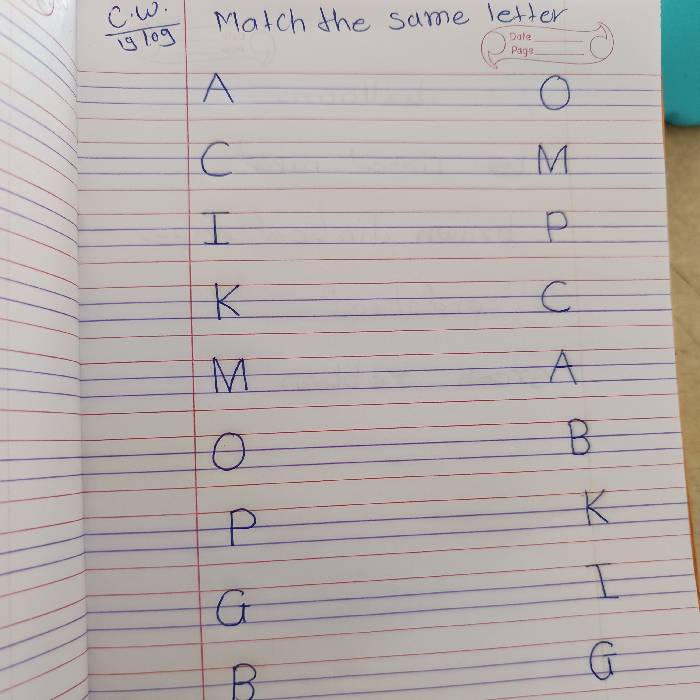 C.W. Match the same letter
19/09
Date
Page
A O
C M
I P
K C
M A
O B
P K
G I
B G